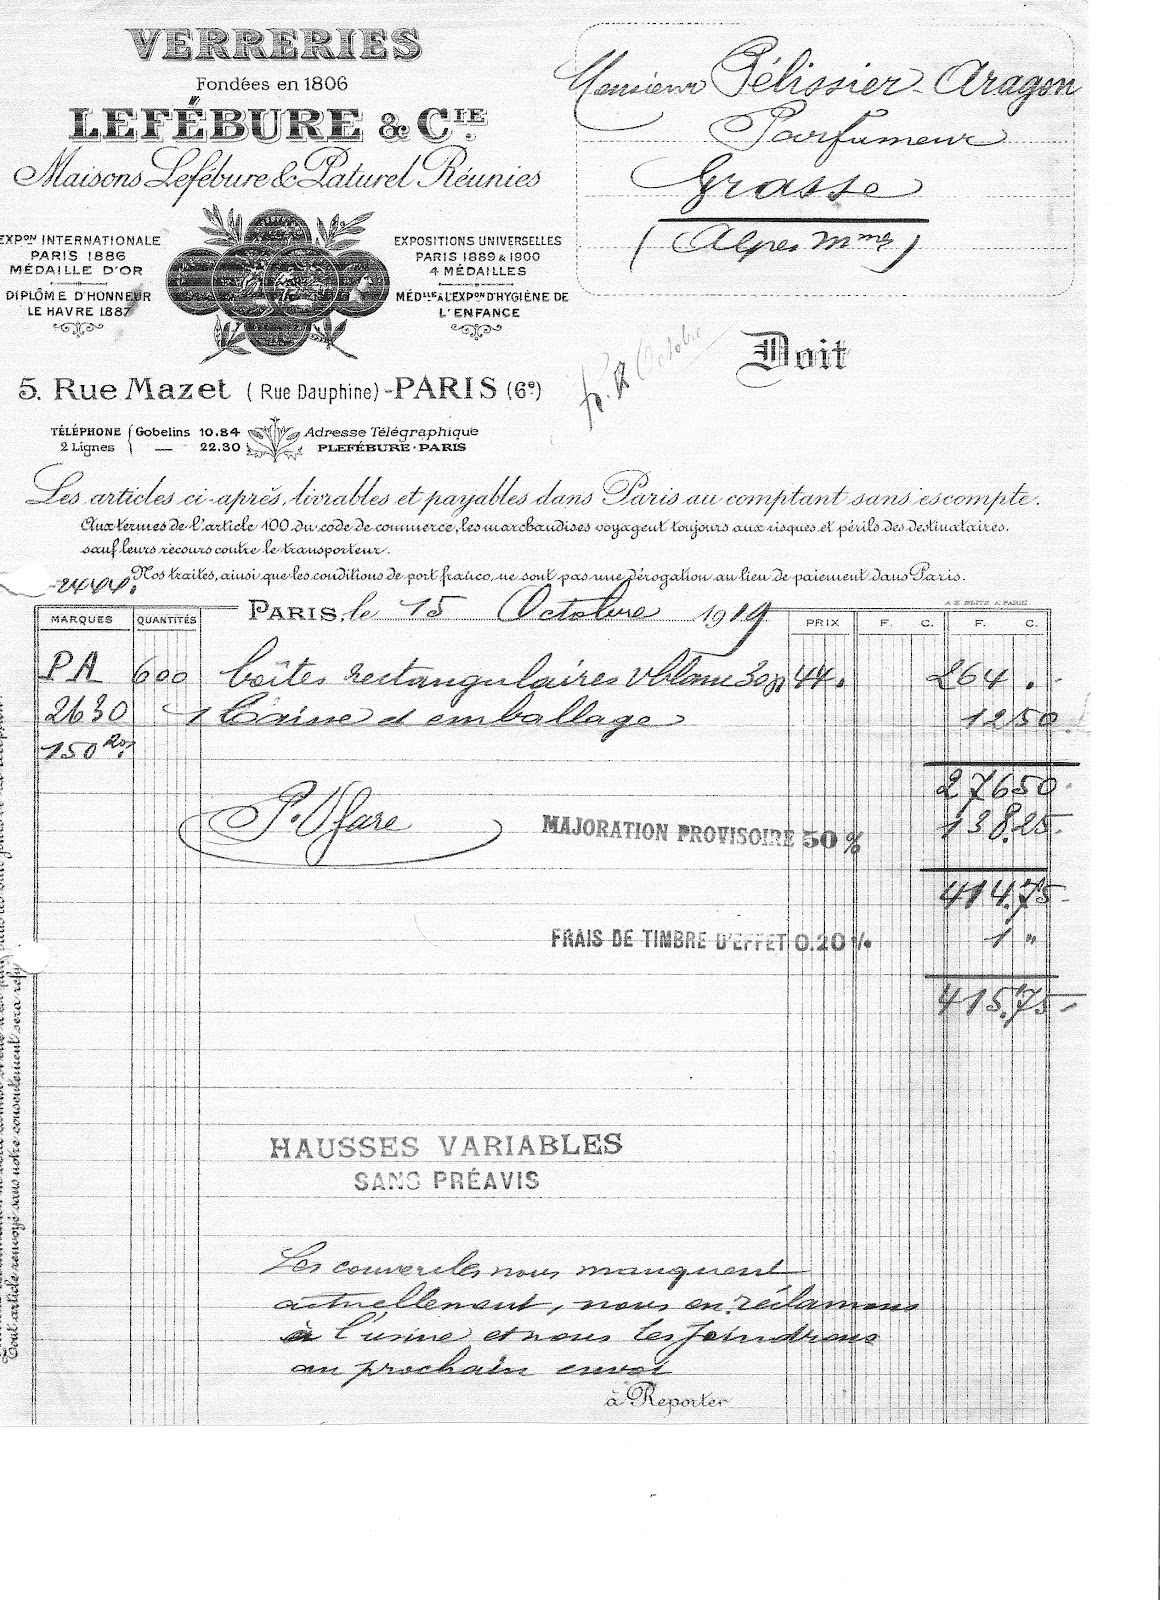 VERRERIES
Fondées en 1806
LEFÉBURE & CIE
Maisons Lefébure & Paturel Réunies
EXPON INTERNATIONALE
PARIS 1886
MÉDAILLE D'OR
DIPLÔME D'HONNEUR
LE HAVRE 1887
EXPOSITIONS UNIVERSELLES
PARIS 1889 & 1900
4 MÉDAILLES
MÉDLLE À L'EXPON D'HYGIÈNE DE
L'ENFANCE
5. Rue Mazet (Rue Dauphine) - PARIS (6e)
TÉLÉPHONE Gobelins 10.84
2 Lignes — 22.30
Adresse Télégraphique
PLEFÉBURE-PARIS
Monsieur Pélissier-Aragon
Parfumeur
Grasse
(Alpes Mmes)
Octobre
Doit
Les articles ci-après, livrables et payables dans Paris au comptant sans escompte.
Aux termes de l'article 100 du code de commerce, les marchandises voyagent toujours aux risques et périls des destinataires,
sauf leurs recours contre le transporteur.
Nos traites, ainsi que les conditions de port franco, ne sont pas une dérogation au lieu de paiement dans Paris.
PARIS, le 15 Octobre 1919
MARQUES QUANTITÉS PRIX F. C. F. C.
PA 600 boîtes rectangulaires v blanc 30 gr 44. 264.
2630 1 Caisse et emballage 12 50
150
276 50
P.V. Gare MAJORATION PROVISOIRE 50 % 138.25
414.75
FRAIS DE TIMBRE D'EFFET 0.20 % 1 "
415.75
HAUSSES VARIABLES
SANS PRÉAVIS
Les couvercles nous manquent
actuellement, nous en réclamons
à l'usine et nous les joindrons
au prochain envoi
à Reporter
Tout article renvoyé sans notre consentement sera refu